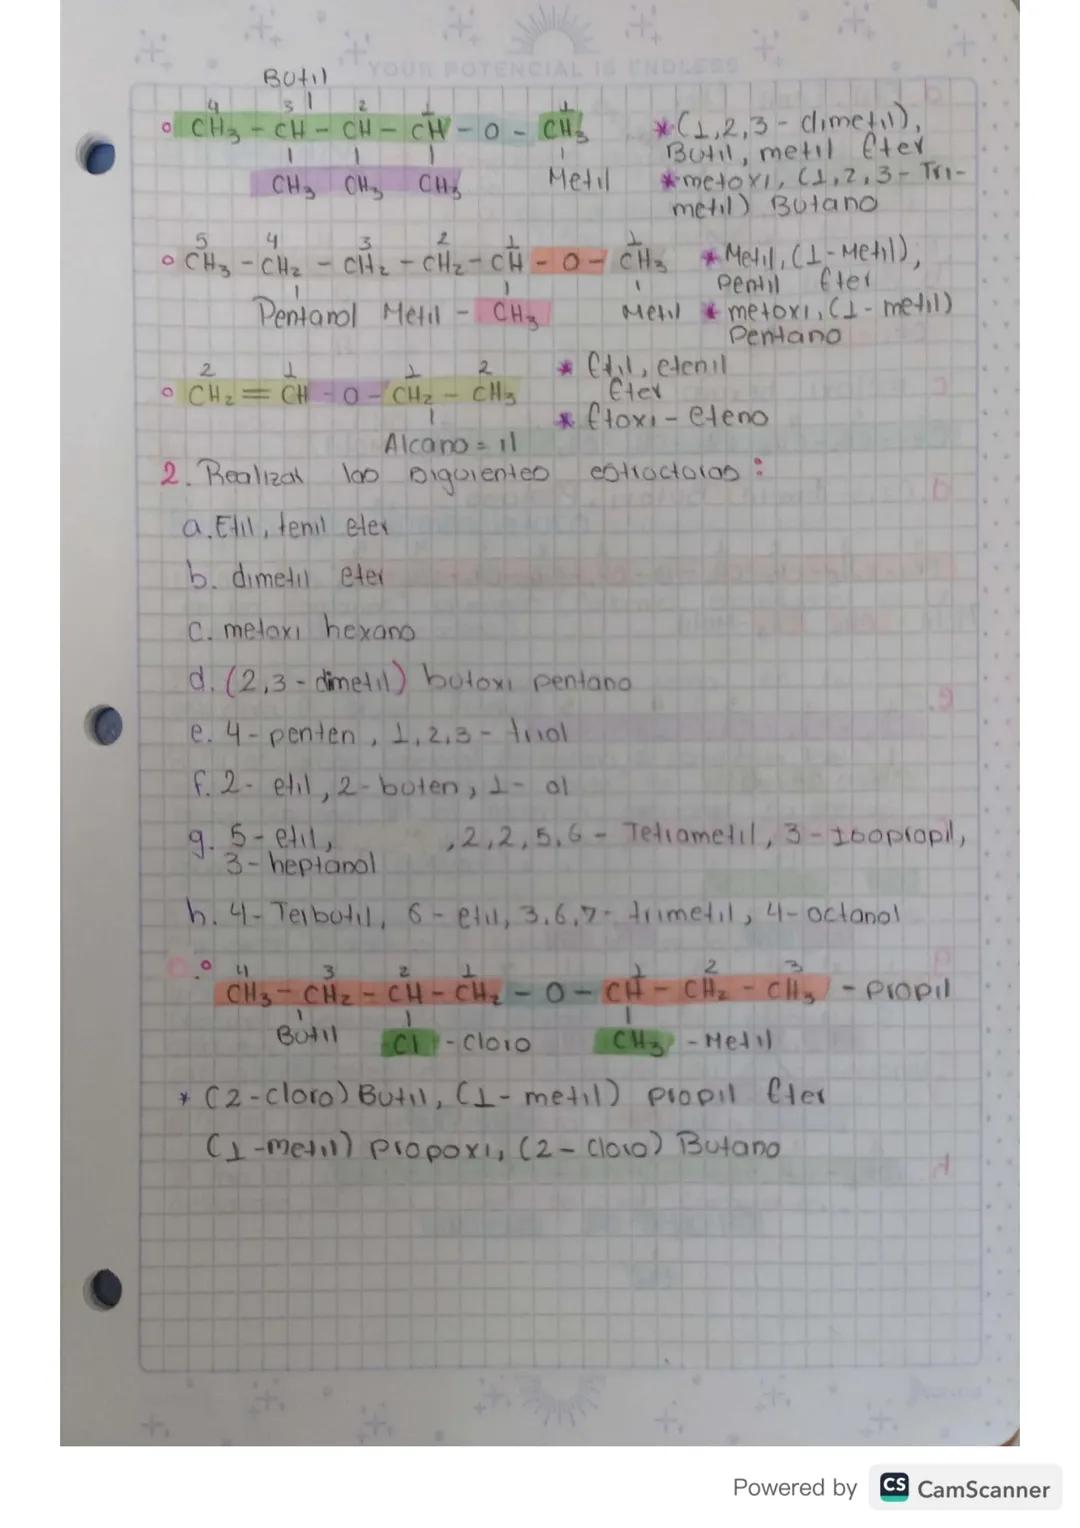 YOUR POTENCIAL IS ENDLESS
Butil
4 3 2 1 1
CH3 - CH - CH - CH - O - CH3
CH3 CH3 CH3 Metil
* (1,2,3 - dimetil),
Butil, metil Eter
* metoxi, (1,2,3 - Tri-
metil) Butano
5 4 3 2 1 1
CH3 - CH2 - CH2 - CH2 - CH - O - CH3
Pentanol Metil - CH3 Metil
* Metil, (1-Metil),
Pentil Eter
* metoxi, (1 - metil)
Pentano
2 1 1 2
CH2 = CH - O - CH2 - CH3
Alcano = il
* Etil, etenil
Eter
* Etoxi - eteno
2. Realizar las siguientes estructuras :
a. Etil, fenil eter
b. dimetil eter
c. metoxi hexano
d. (2,3 - dimetil) butoxi pentano
e. 4 - penten , 1,2,3 - triol
f. 2 - etil , 2 - buten , 1 - ol
g. 5 - etil, , 2,2,5,6 - Tetrametil, 3 - Isopropil,
3 - heptanol
h. 4 - Terbutil, 6 - etil, 3,6,7 - trimetil, 4 - octanol
4 3 2 1 1 2 3
CH3 - CH2 - CH - CH2 - O - CH - CH2 - CH3 - Propil
Butil Cl - Cloro CH3 - Metil
* (2-cloro) Butil, (1 - metil) propil Eter
(1-metil) Propoxi, (2 - cloro) Butano
Powered by CS CamScanner